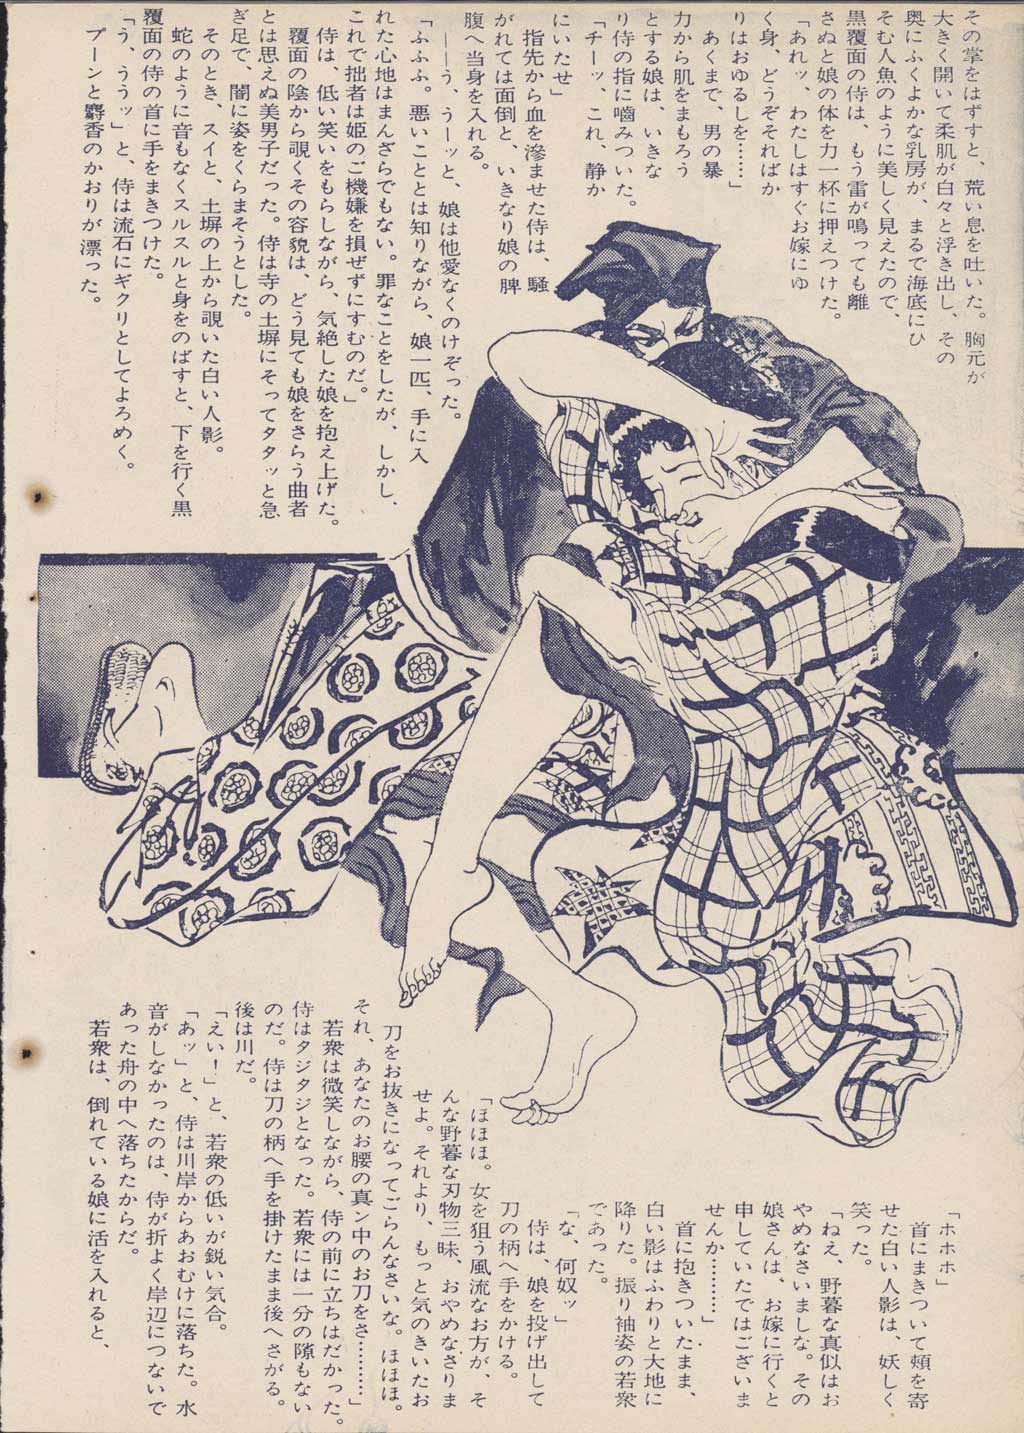 その掌をはずすと、荒い息を吐いた。胸元が
大きく開いて柔肌が白々と浮き出し、その
奥にふくよかな乳房が、まるで海底にひ
そむ人魚のように美しく見えたので、
黒覆面の侍は、もう雷が鳴っても離
さぬと娘の体を力一杯に押えつけた。
「あれッ、わたしはすぐお嫁にゆ
く身、どうぞそればか
りはおゆるしを……」
あくまで、男の暴
力から肌をまもろう
とする娘は、いきな
り侍の指に嚙みついた。
「チーッ、これ、静か
にいたせ」
指先から血を滲ませた侍は、騒
がれては面倒と、いきなり娘の脾
腹へ当身を入れる。
――う、うーッと、娘は他愛なくのけぞった。
「ふふふ。悪いこととは知りながら、娘一匹、手に入
れた心地はまんざらでもない。罪なことをしたが、しかし、
これで拙者は姫のご機嫌を損ぜずにすむのだ。」
侍は、低い笑いをもらしながら、気絶した娘を抱え上げた。
覆面の陰から覗くその容貌は、どう見ても娘をさらう曲者
とは思えぬ美男子だった。侍は寺の土塀にそってタタッと急
ぎ足で、闇に姿をくらまそうとした。
そのとき、スイと、土塀の上から覗いた白い人影。
蛇のように音もなくスルスルと身をのばすと、下を行く黒
覆面の侍の首に手をまきつけた。
「う、ううッ」と、侍は流石にギクリとしてよろめく。
プーンと麝香のかおりが漂った。
「ホホホ」
首にまきついて頰を寄
せた白い人影は、妖しく
笑った。
「ねえ、野暮な真似はお
やめなさいましな。その
娘さんは、お嫁に行くと
申していたではございま
せんか…………」
首に抱きついたまま、
白い影はふわりと大地に
降りた。振り袖姿の若衆
であった。
「な、何奴ッ」
侍は、娘を投げ出して
刀の柄へ手をかける。
「ほほほ。女を狙う風流なお方が、そ
んな野暮な刃物三昧、おやめなさりま
せよ。それより、もっと気のきいたお
刀をお抜きになってごらんなさいな。ほほほ。
それ、あなたのお腰の真ン中のお刀をさ…………」
若衆は微笑しながら、侍の前に立ちはだかった。
侍はタジタジとなった。若衆には一分の隙もない
のだ。侍は刀の柄へ手を掛けたまま後へさがる。
後は川だ。
「えい！」と、若衆の低いが鋭い気合。
「あッ」と、侍は川岸からあおむけに落ちた。水
音がしなかったのは、侍が折よく岸辺につないで
あった舟の中へ落ちたからだ。
若衆は、倒れている娘に活を入れると、